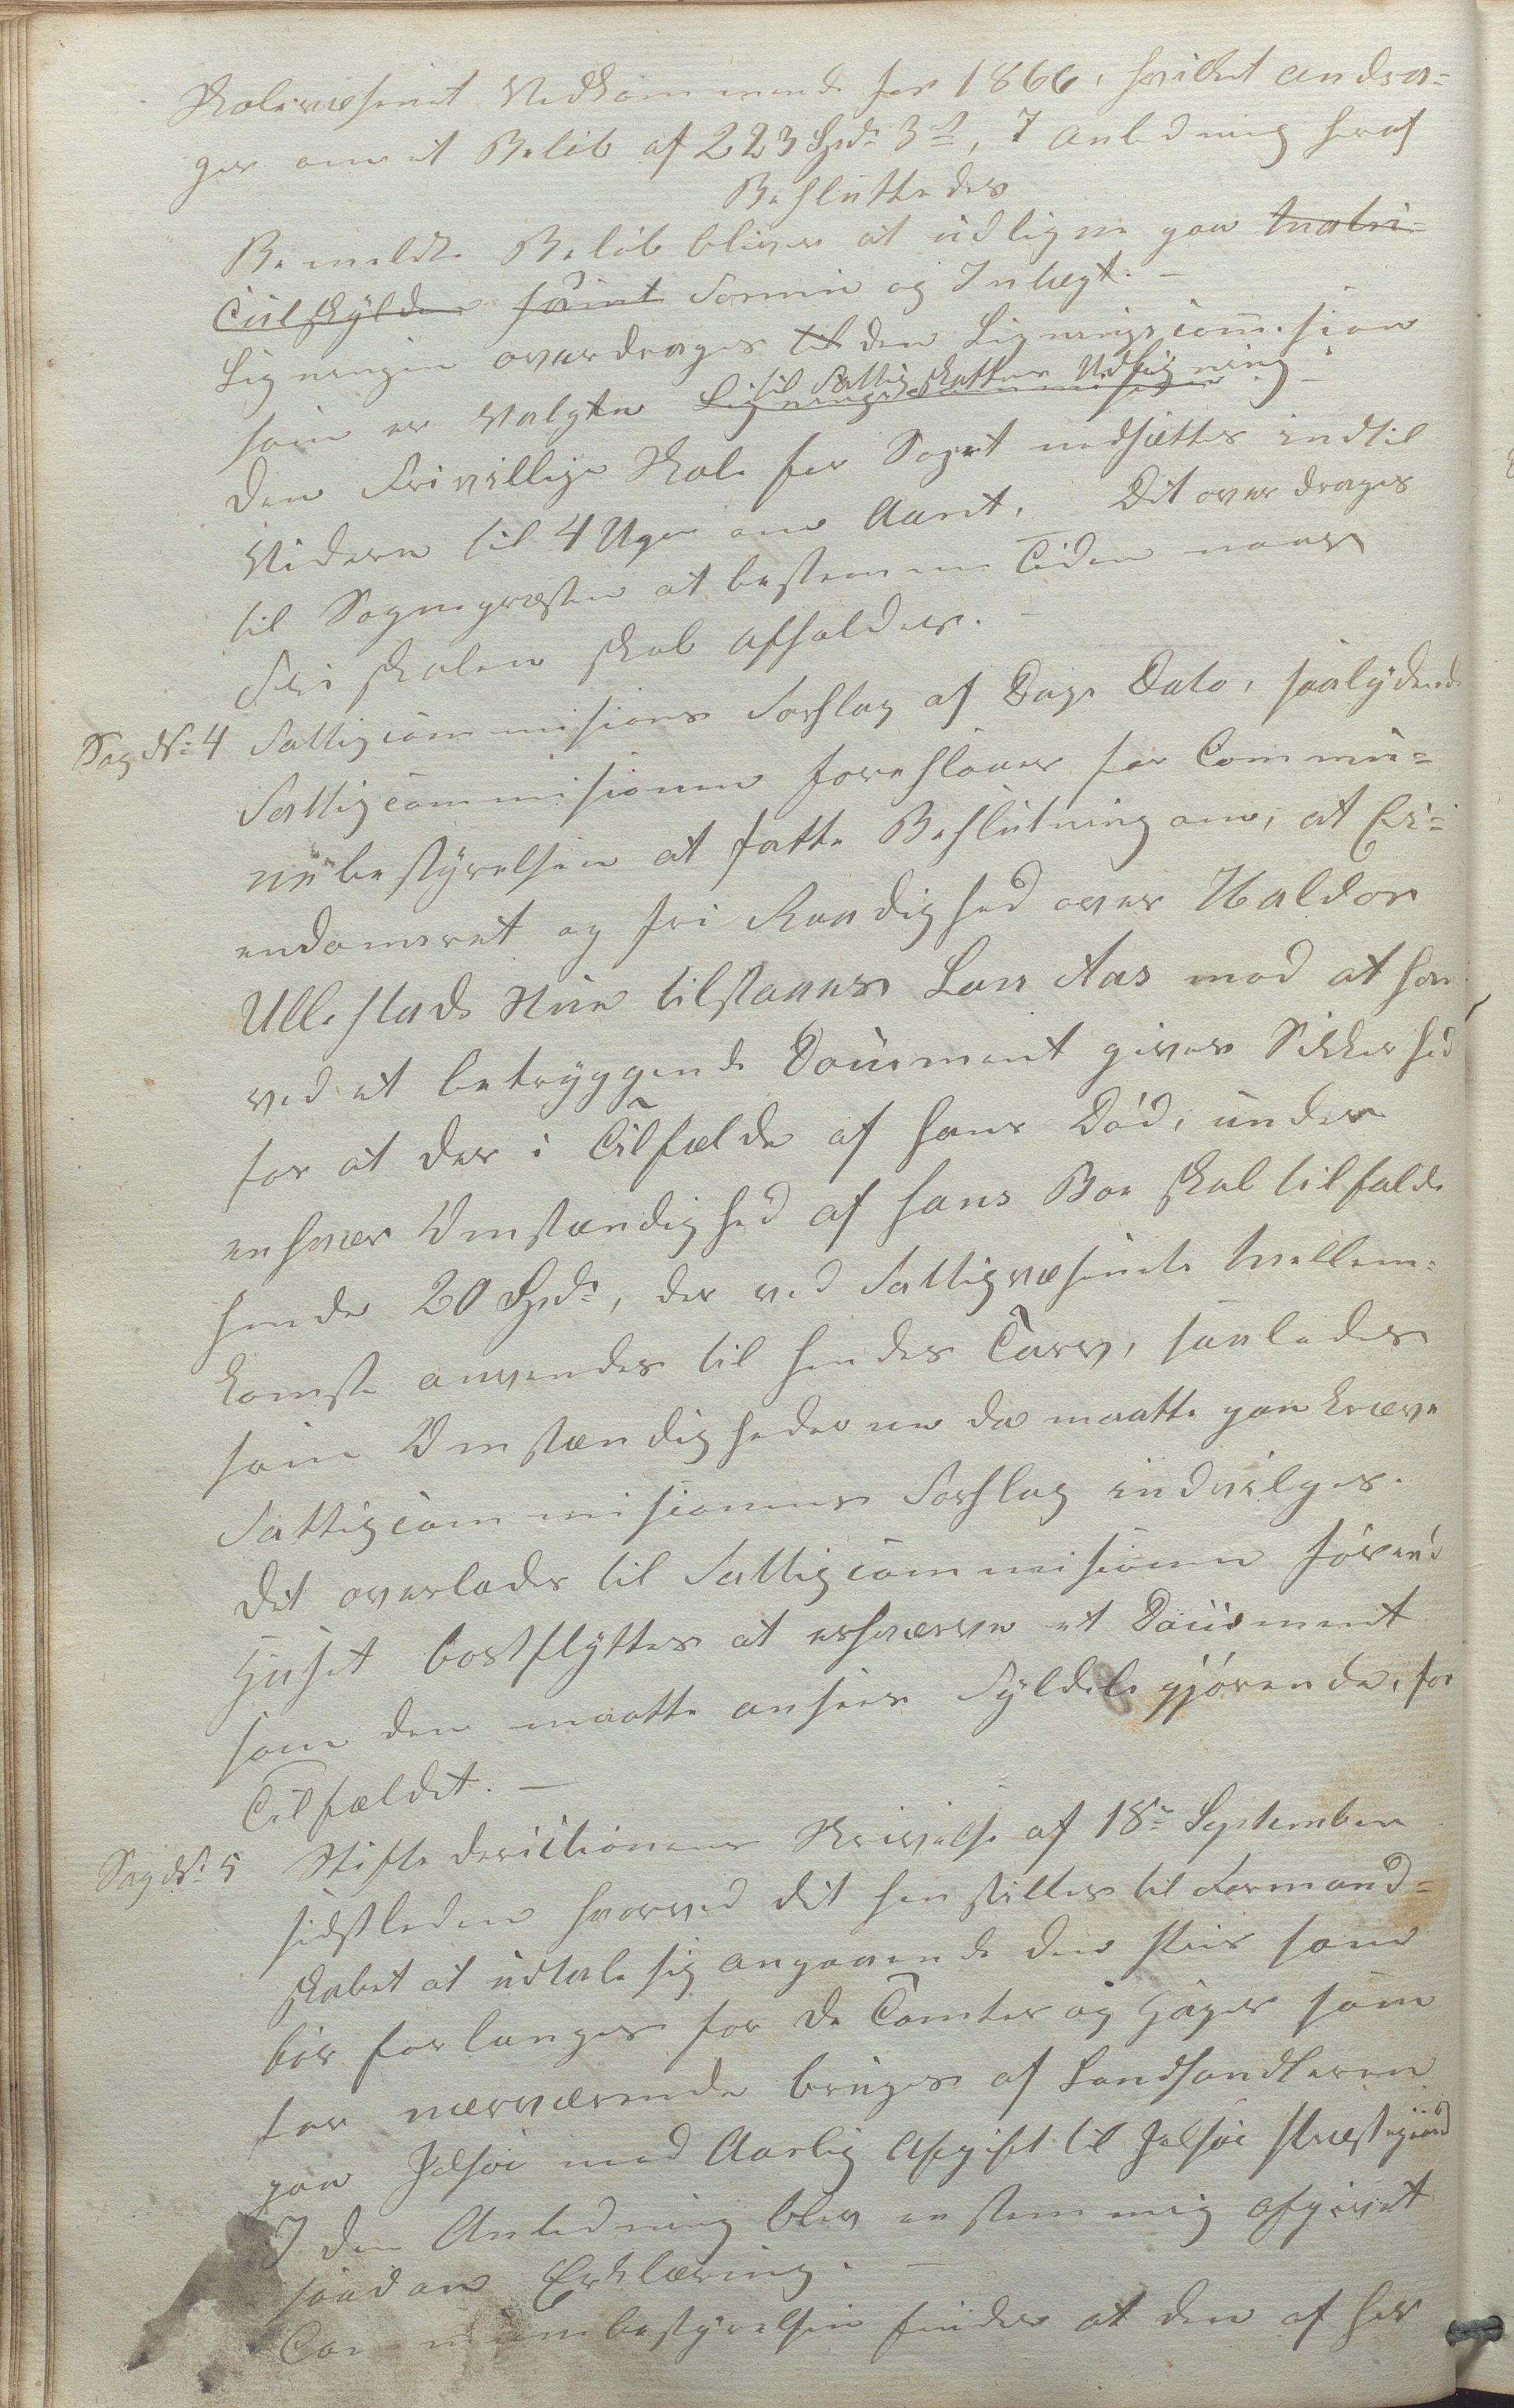 Skolevæsenet Vedkommende for 1866, hvilket andra-
ger om et Beløb af 223 Spd. 3 s, I Anledning heraf
Besluttedes
Bemeldte Beløb bliver at udligne paa Matri-
culskylden samt Formue og Indtægt. –
Ligningen overdrages til den Ligningscommision
som er Valgte Ligningscommisionen
til Fattigskattens Udligning –
Den Frivillige Skole for Sognet nedsættes indtil
Videre til 4 Uger om Aaret, Det overdrages
til Sognepræsten at bestemme Tiden naar
Friskolen skal afholdes. –
Sag No 4 Fattigcommisions Forslag af Dags Dato, saalydende
Fattigcommisionen foreslaaer for Commu-
nebestyrelsen at fatte Beslutning om, at Ei-
endomsret og fri Raadighed over Haldor
Ullestads Hue tilstaaes Lars Aas mod at han
ved et betryggende Document giver Sikkerhed
for at der i Tilfælde af hans Død, under
enhver Omstændighed af hans Boe skal tilfalde
hende 20 Spd., der ved Fattigvæsenets Mellem-
komst anvendes til hendes Tarv, saaledes
som Omstændighederne da maatte paakræve
Fattigcommisionens Forslag indvilges.
Det overlades til Fattigcommisionen førend
Huset bortflyttes at erhverve et Document
som den maatte ansees Fyldestgjørende, for
Tilfældet. –
Sag No 5 Stiftsdirictionens Skrivelse af 18de September
sidstleden hvorved det henstilles til Formand-
skabet at udtale sig angaaende den Priis som
bør forlanges for de Tomter og Hager som
for nærværende bruges af Landhandleren
paa Jelsøe mod Aarlig Afgift til Jelsøe Præstegaard
I den Anledning blev enstemmig afgivet
saadan Erklæring. –
Communebestyrelsen finder at den af her